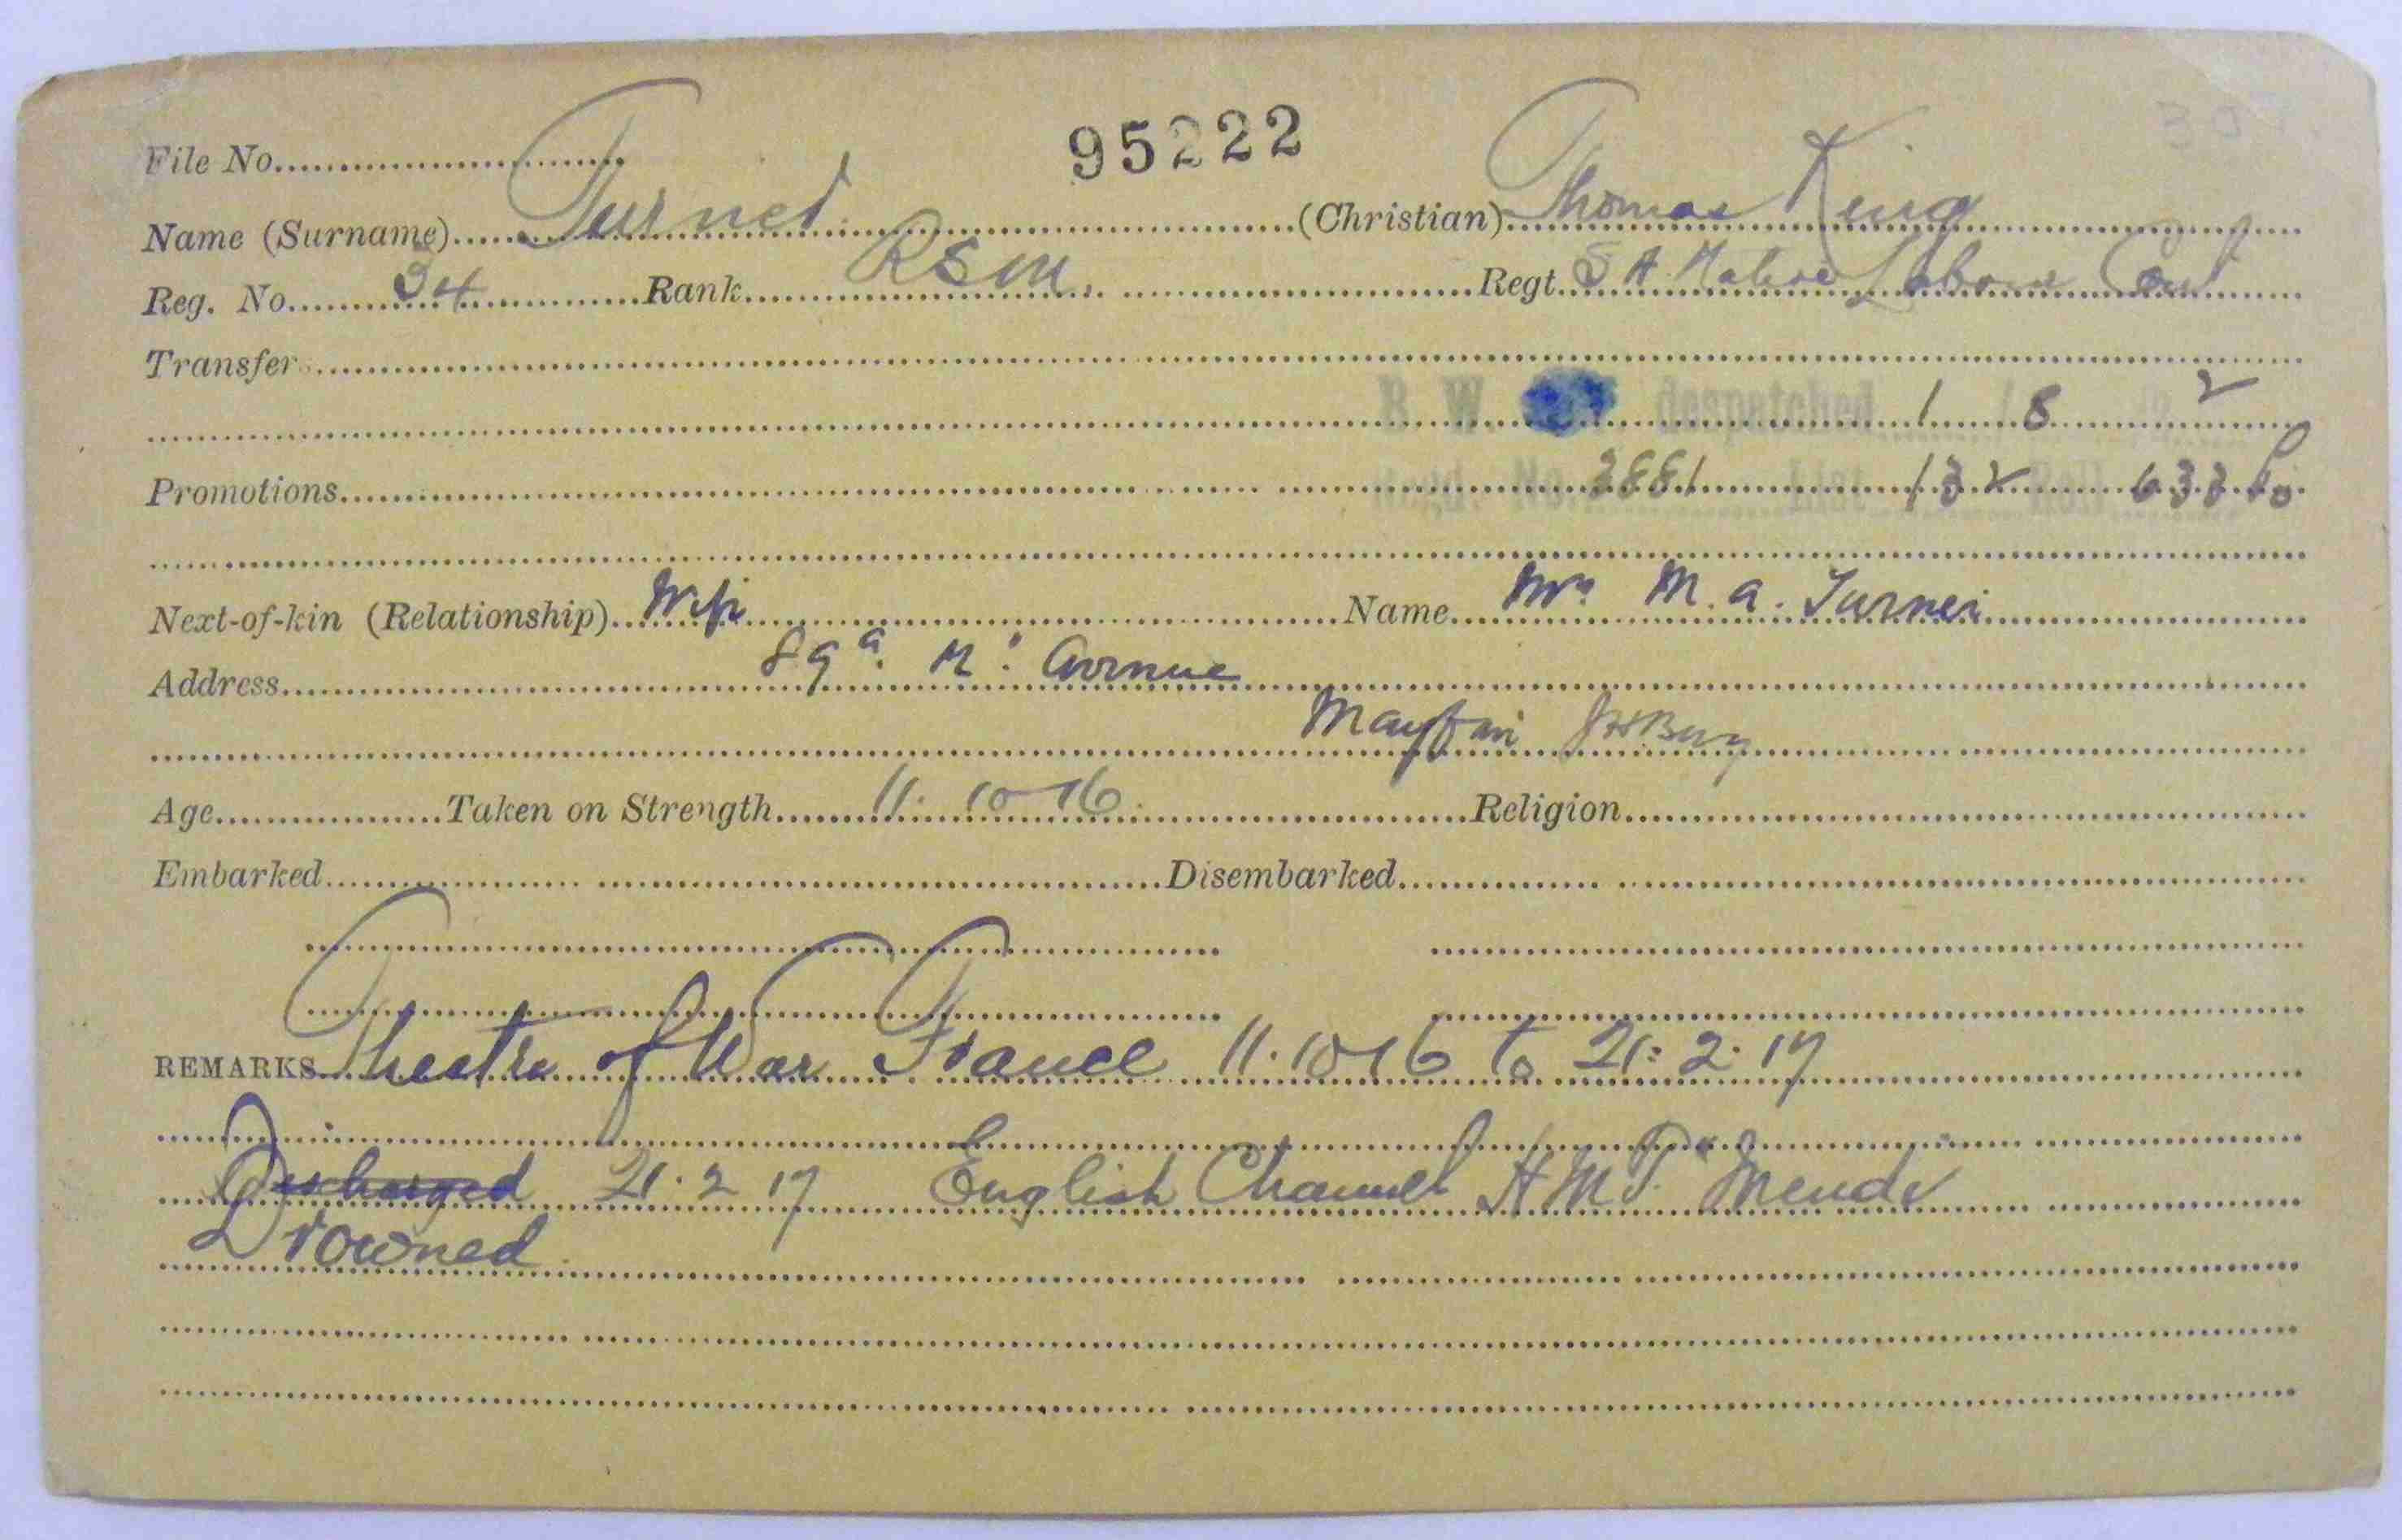 95222
File No.
Name (Surname) Turner (Christian) Thomas King
Reg. No. 34 Rank RSM. Regt. S A Native Labour Cont
Transfer
B W despatched 1 8 2
Promotions No. 2881 List 132 Roll 633
Next-of-kin (Relationship) Wife Name Mrs M. A. Turner
Address 89a. N: Avenue
Mayfair JHBurg
Age Taken on Strength 11. 10 16. Religion
Embarked Disembarked
REMARKS Theatre of War France 11.10 16 to 21.2.17
Discharged 21.2 17 English Channel H M T. "Mendi
Drowned